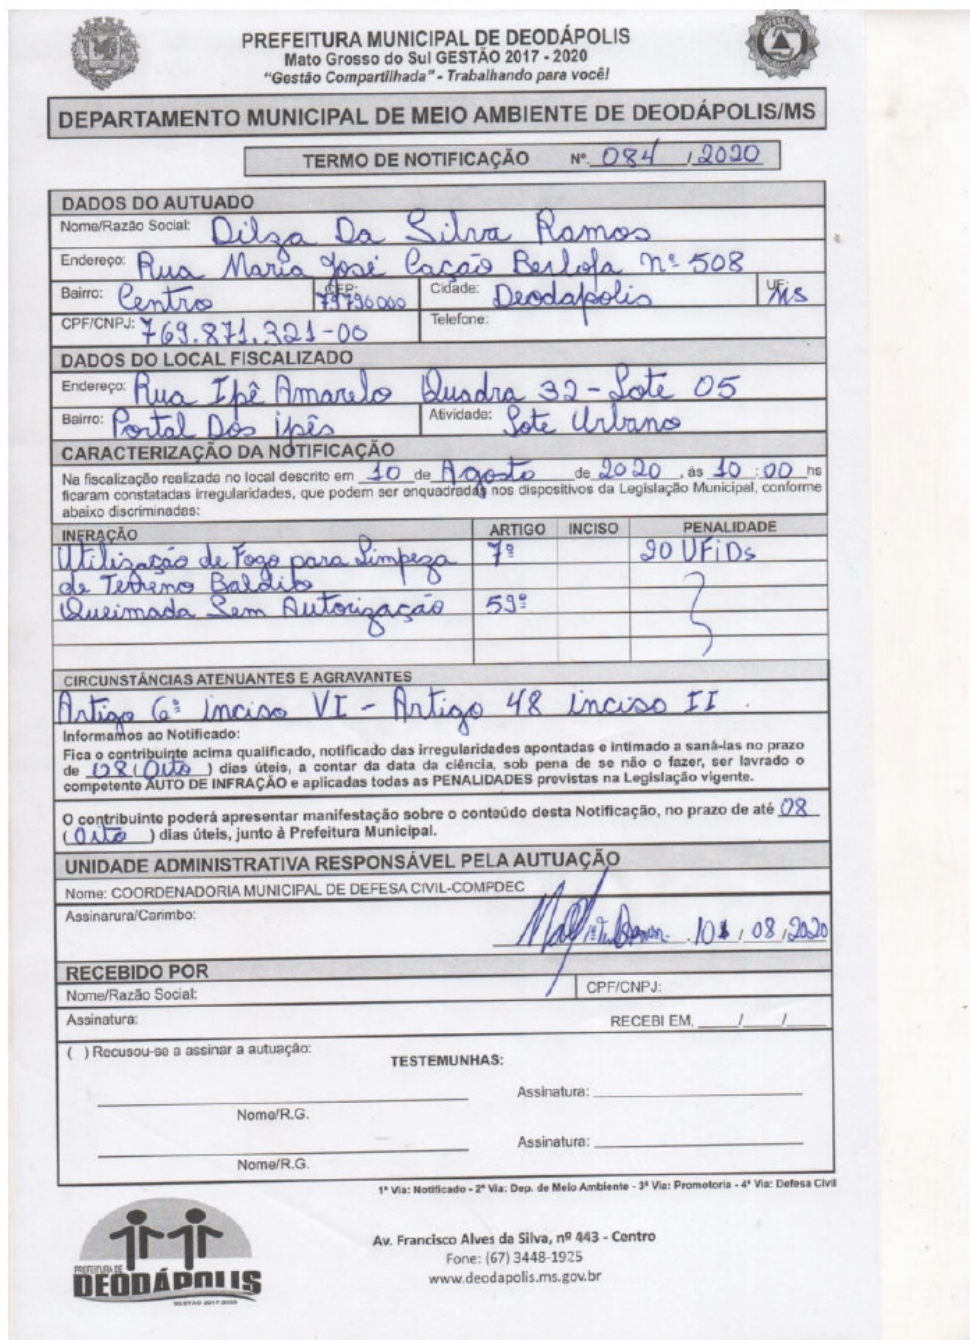 PREFEITURA MUNICIPAL DE DEODÁPOLIS
Mato Grosso do Sul GESTÃO 2017 - 2020
"Gestão Compartilhada" - Trabalhando para você!
DEPARTAMENTO MUNICIPAL DE MEIO AMBIENTE DE DEODÁPOLIS/MS
TERMO DE NOTIFICAÇÃO Nº. 084 / 2020
DADOS DO AUTUADO
Nome/Razão Social: Dilza Da Silva Ramos
Endereço: Rua Maria José Cação Berlofa nº 508
Bairro: Centro CEP: 79790000 Cidade: Deodapolis UF: MS
CPF/CNPJ: 769.871.321-00 Telefone:
DADOS DO LOCAL FISCALIZADO
Endereço: Rua Ipê Amarelo Quadra 32 - Lote 05
Bairro: Portal Dos ipês Atividade: Lote Urbano
CARACTERIZAÇÃO DA NOTIFICAÇÃO
Na fiscalização realizada no local descrito em 10 de Agosto de 2020, às 10:00 hs
ficaram constatadas irregularidades, que podem ser enquadradas nos dispositivos da Legislação Municipal, conforme
abaixo discriminadas:
INFRAÇÃO ARTIGO INCISO PENALIDADE
Utilização de Fogo para Limpeza 7º 20 UFiDs
de Terreno Baldio
Queimada Sem Autorização 59º
CIRCUNSTÂNCIAS ATENUANTES E AGRAVANTES
Artigo 6º inciso VI - Artigo 48 inciso II.
Informamos ao Notificado:
Fica o contribuinte acima qualificado, notificado das irregularidades apontadas e intimado a saná-las no prazo
de 08 (Oito) dias úteis, a contar da data da ciência, sob pena de se não o fazer, ser lavrado o
competente AUTO DE INFRAÇÃO e aplicadas todas as PENALIDADES previstas na Legislação vigente.
O contribuinte poderá apresentar manifestação sobre o conteúdo desta Notificação, no prazo de até 08
(Oito) dias úteis, junto à Prefeitura Municipal.
UNIDADE ADMINISTRATIVA RESPONSÁVEL PELA AUTUAÇÃO
Nome: COORDENADORIA MUNICIPAL DE DEFESA CIVIL-COMPDEC
Assinarura/Carimbo: / 08 / 2020
RECEBIDO POR
Nome/Razão Social: CPF/CNPJ:
Assinatura: RECEBI EM, ____/____/____
( ) Recusou-se a assinar a autuação:
TESTEMUNHAS:
Assinatura:
Nome/R.G.
Assinatura:
Nome/R.G.
1ª Via: Notificado - 2ª Via: Dep. de Meio Ambiente - 3ª Via: Promotoria - 4ª Via: Defesa Civil
PREFEITURA DE
DEODÁPOLIS
GESTÃO 2017-2020
Av. Francisco Alves da Silva, nº 443 - Centro
Fone: (67) 3448-1925
www.deodapolis.ms.gov.br